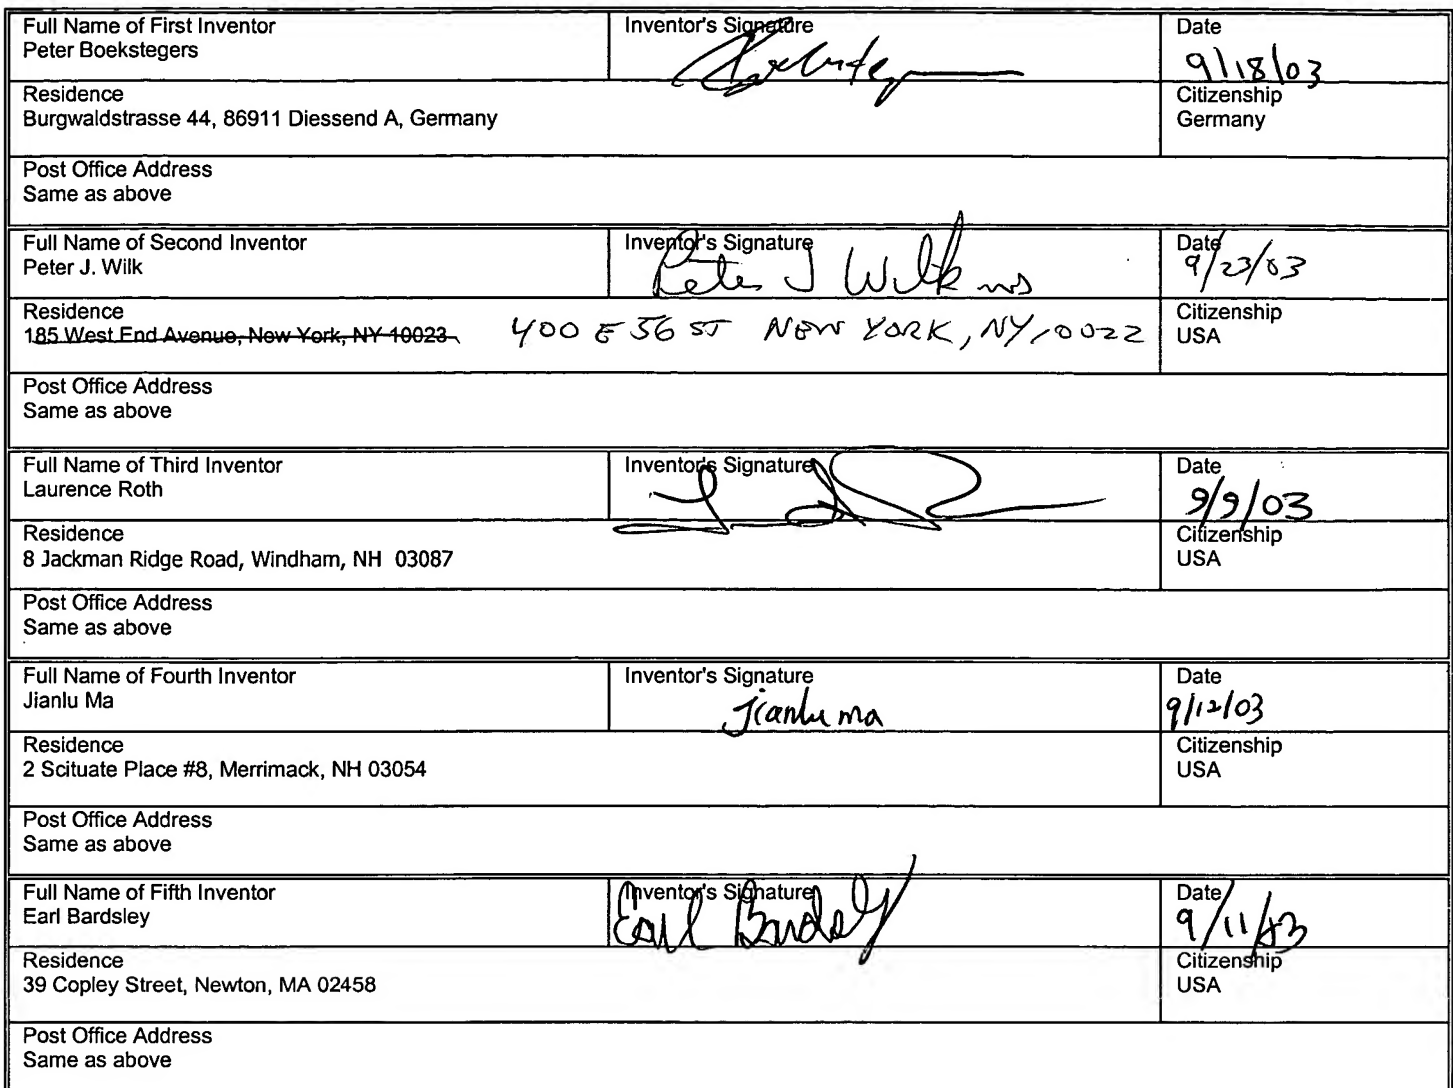 Full Name of First Inventor
Peter Boekstegers
Inventor's Signature
Date
9/18/03
Residence
Burgwaldstrasse 44, 86911 Diessend A, Germany
Citizenship
Germany
Post Office Address
Same as above
Full Name of Second Inventor
Peter J. Wilk
Inventor's Signature
Peter J Wilk
Date
9/23/03
Residence
185 West End Avenue, New York, NY 10023
400 E 56 ST NEW YORK, NY 10022
Citizenship
USA
Post Office Address
Same as above
Full Name of Third Inventor
Laurence Roth
Inventor's Signature
Date
9/9/03
Residence
8 Jackman Ridge Road, Windham, NH 03087
Citizenship
USA
Post Office Address
Same as above
Full Name of Fourth Inventor
Jianlu Ma
Inventor's Signature
Jianlu ma
Date
9/12/03
Residence
2 Scituate Place #8, Merrimack, NH 03054
Citizenship
USA
Post Office Address
Same as above
Full Name of Fifth Inventor
Earl Bardsley
Inventor's Signature
Earl Bardsley
Date
9/11/03
Residence
39 Copley Street, Newton, MA 02458
Citizenship
USA
Post Office Address
Same as above